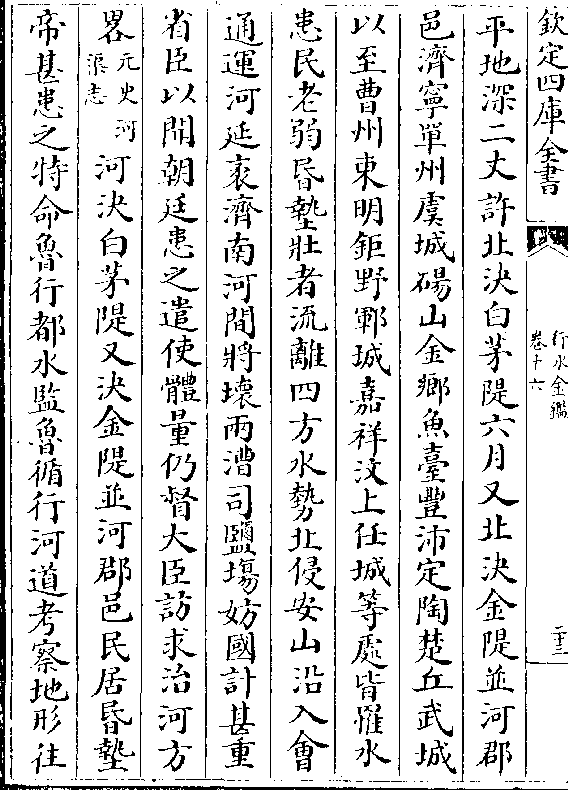 欽定四庫全書
行水金鑑
卷十六
二十三
平地深二丈許北決白茅隄六月又北決金隄並河郡
邑濟寧單州虞城碭山金鄉魚臺豐沛定陶楚丘武城
以至曹州東明鉅野鄆城嘉祥汶上任城等處皆罹水
患民老弱昏墊壯者流離四方水勢北侵安山沿入會
通運河延袤濟南河間將壞兩漕司鹽場妨國計甚重
省臣以聞朝廷患之遣使體量仍督大臣訪求治河方
畧元史河渠志河決白茅隄又決金隄並河郡邑民居昏墊
帝甚患之特命魯行都水監魯循行河道考察地形往